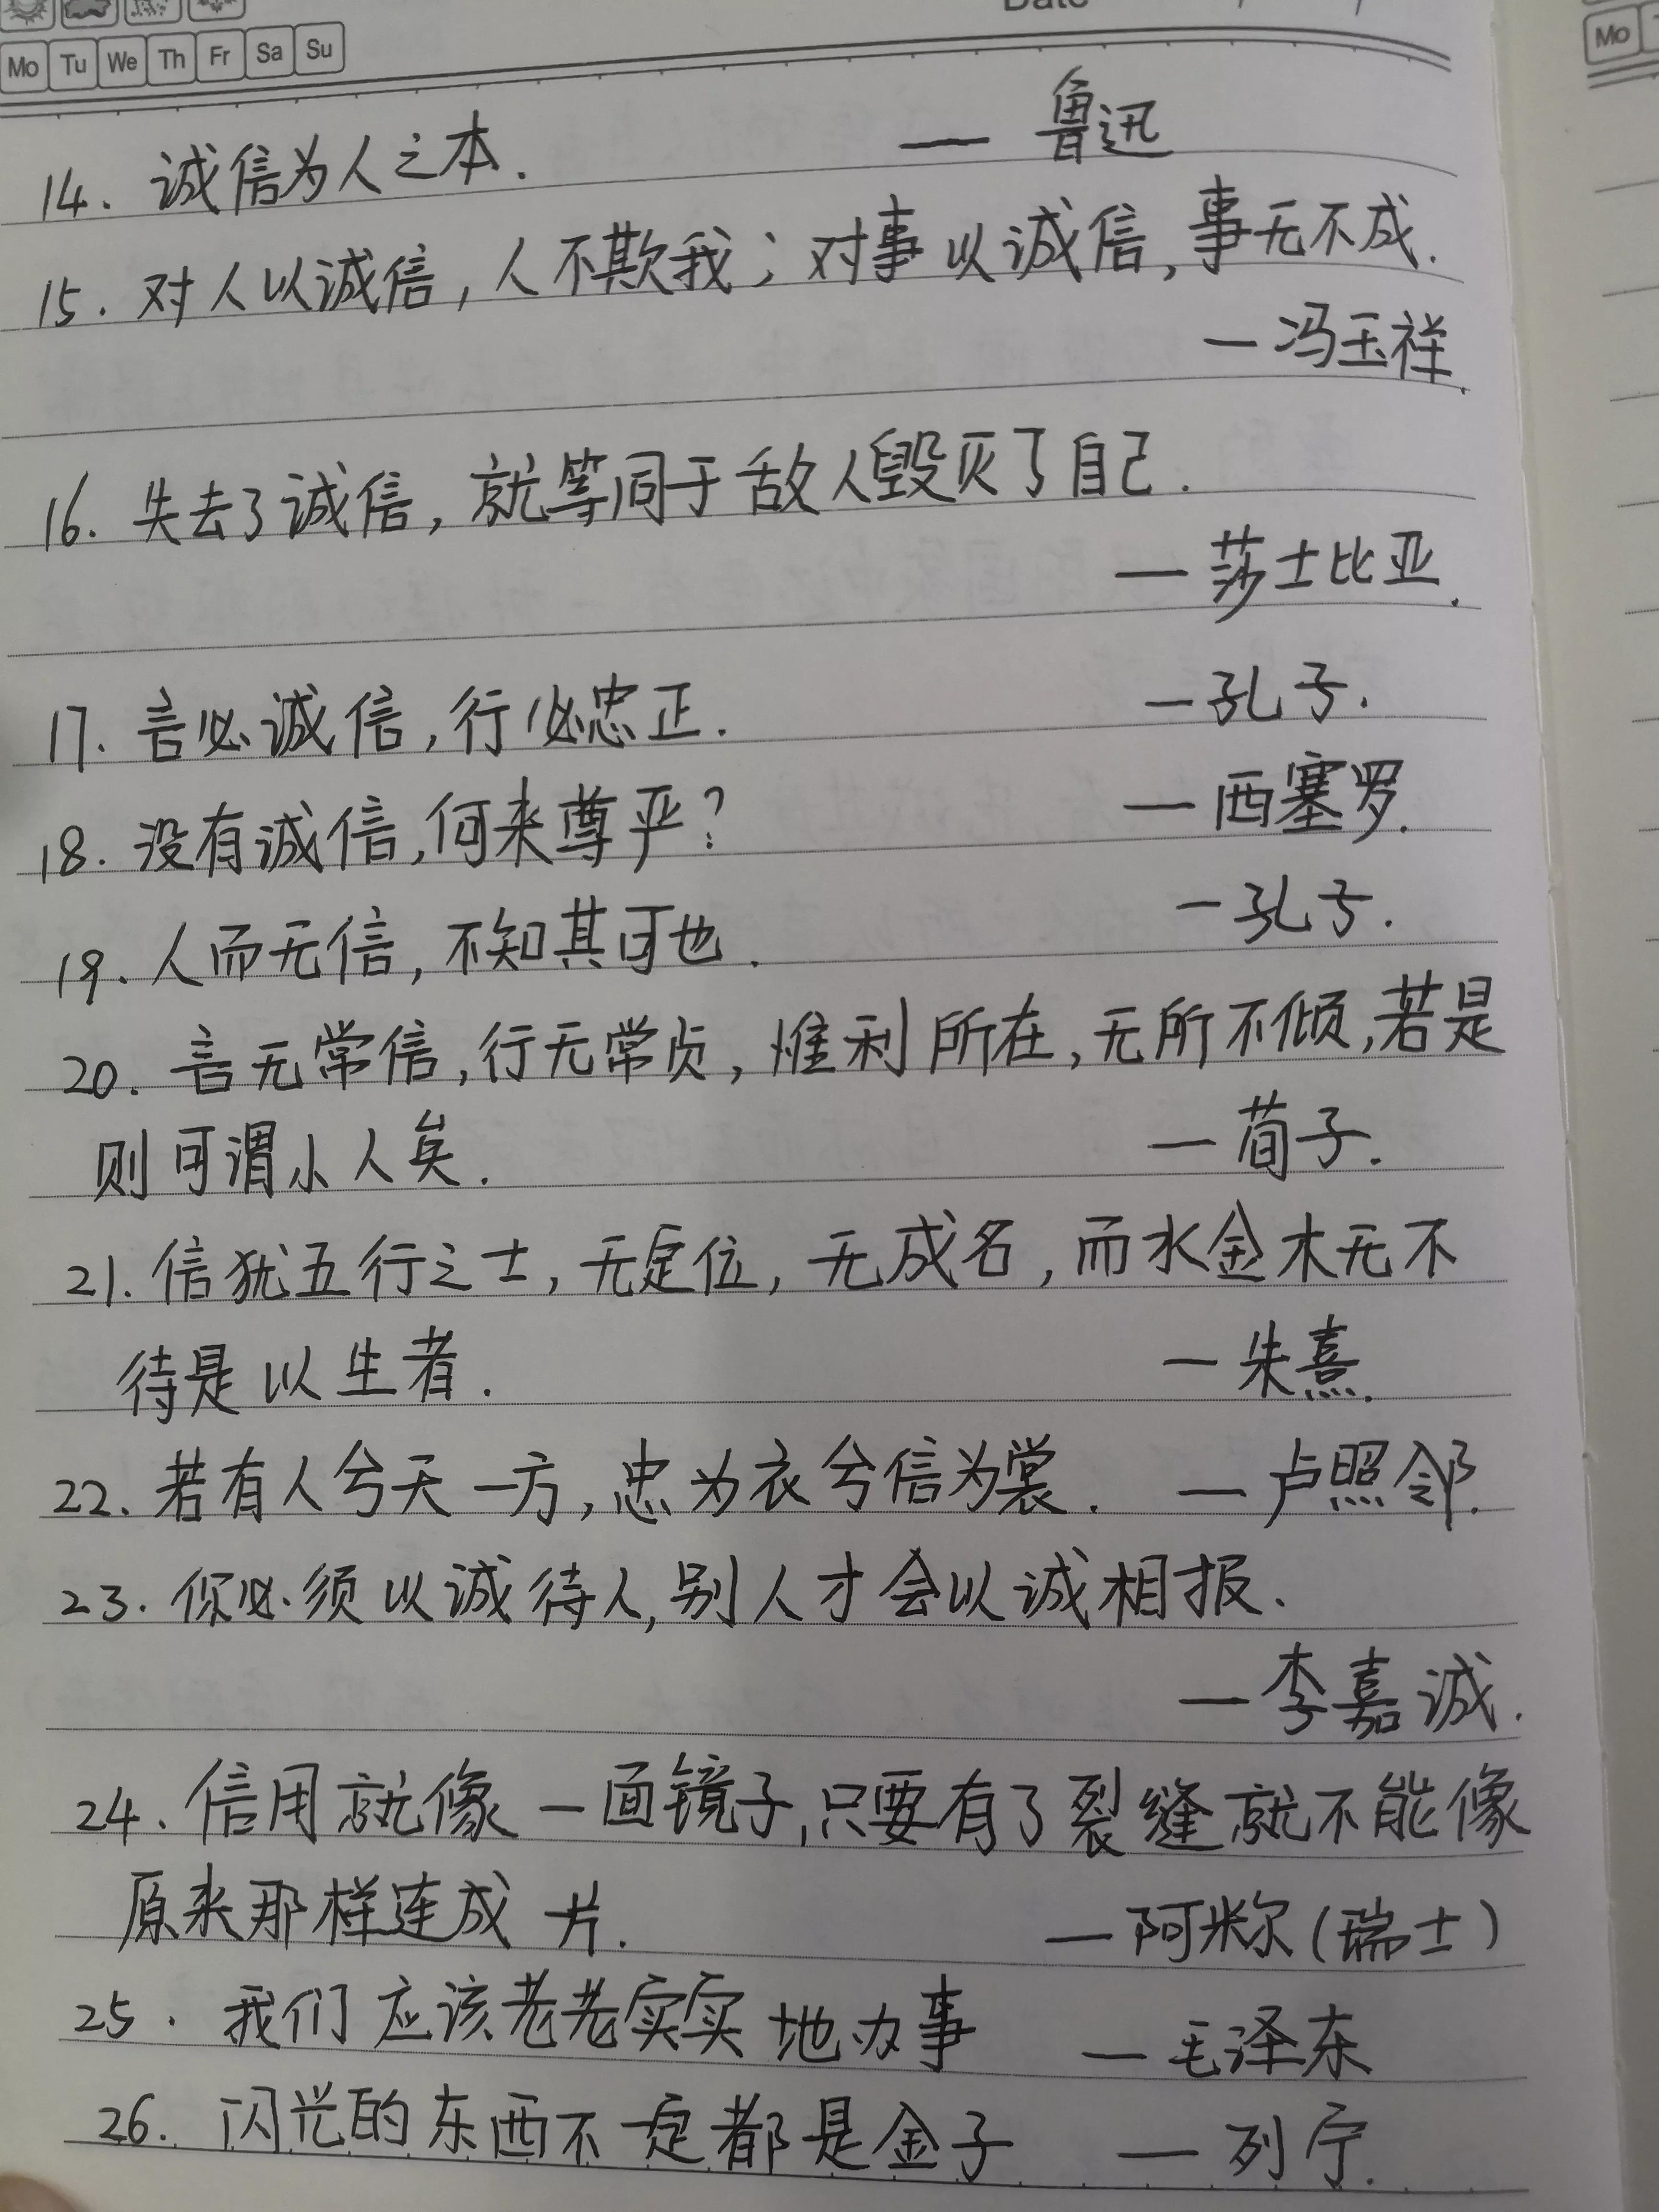 Date
Mo Tu We Th Fr Sa Su
Mo
14. 诚信为人之本. — 鲁迅
15. 对人以诚信,人不欺我;对事以诚信,事无不成.
—冯玉祥.
16. 失去了诚信,就等同于敌人毁灭了自己.
—莎士比亚.
17. 言必诚信,行必忠正. —孔子.
18. 没有诚信,何来尊严? —西塞罗.
19. 人而无信,不知其可也. —孔子.
20. 言无常信,行无常贞,惟利所在,无所不倾,若是
则可谓小人矣. —荀子.
21. 信犹五行之士,无定位,无成名,而水金木无不
待是以生者. —朱熹.
22. 若有人兮天一方,忠为衣兮信为裳. —卢照邻.
23. 你必须以诚待人,别人才会以诚相报.
—李嘉诚.
24. 信用就像一面镜子,只要有了裂缝就不能像
原来那样连成一片. —阿米尔(瑞士)
25. 我们应该老老实实地办事 —毛泽东
26. 闪光的东西不一定都是金子 —列宁.